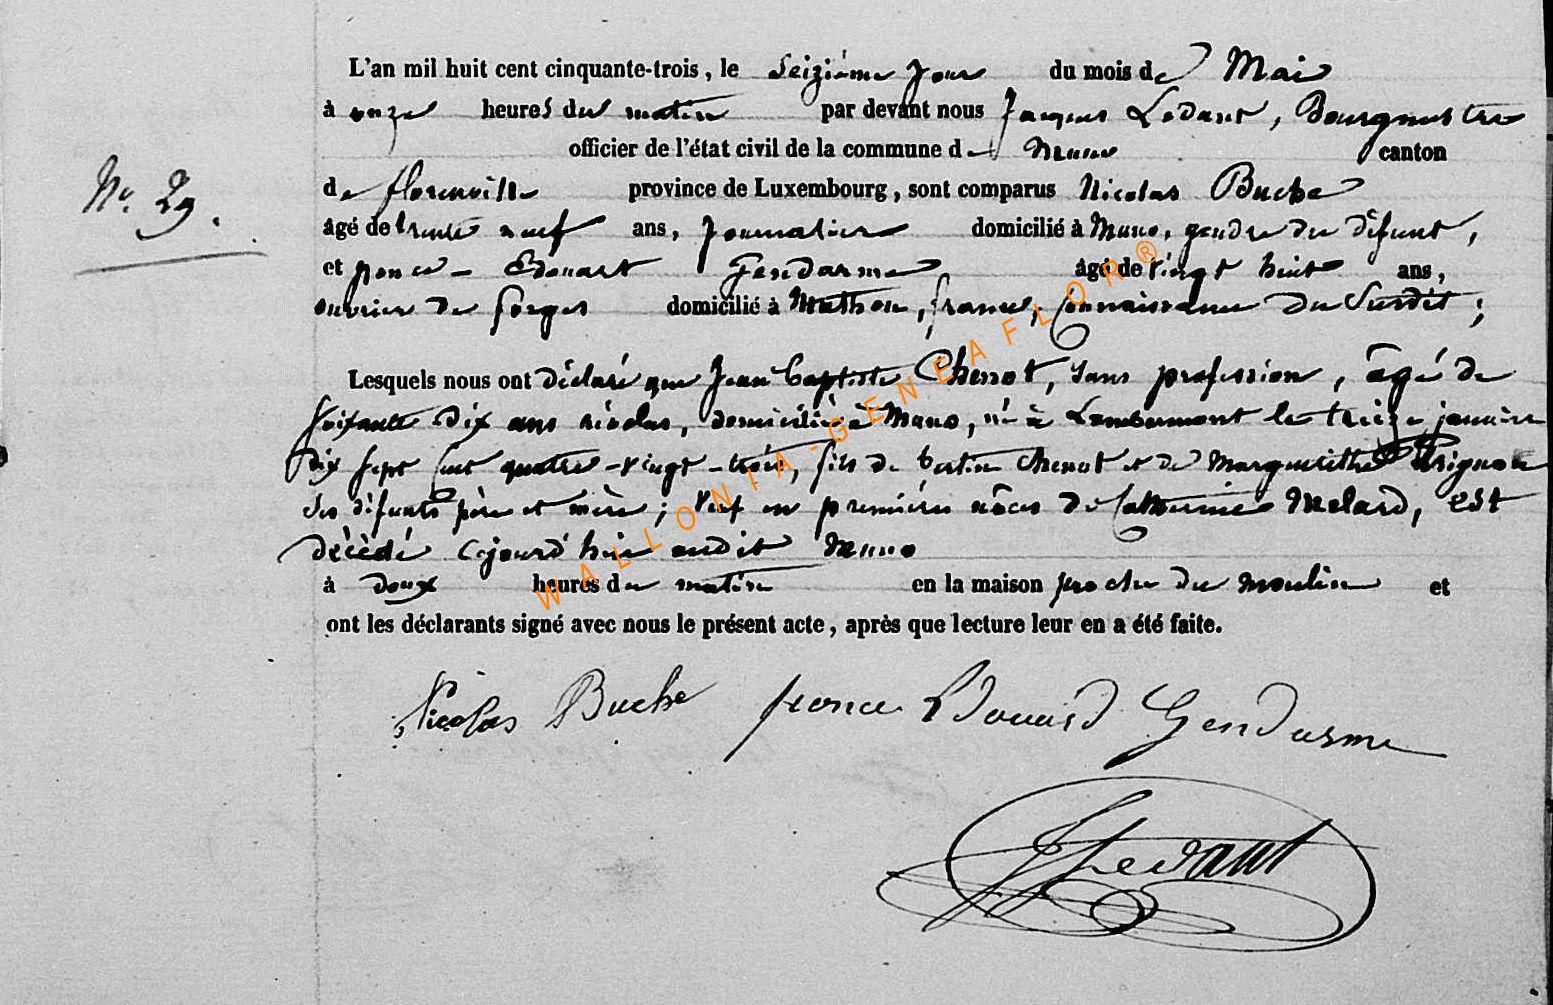 L'an mil huit cent cinquante-trois, le Seizième jour du mois de Mai
à onze heures du matin par devant nous Jacques Ledant, Bourgmestre
officier de l'état civil de la commune de Muno canton
de florenville province de Luxembourg, sont comparus Nicolas Buche
N° 29.
âgé de trente neuf ans, journalier domicilié à Muno, gendre du défunt,
et france Edouart Gendarme âgé de vingt huit ans,
ouvrier de forges domicilié à Mathon, france, Connaissance du Susdit;
Lesquels nous ont déclaré que Jean Baptiste Chenot, sans profession, âgé de
soixante dix ans révolus, domicilié à Muno, né à Lambermont le treize janvier
dix sept cent quatre-vingt-trois, fils de Chenot et de Margueritte
ses défunts père et mère; veuf en premières nôces de Catherine Melard, est
décédé cejourd'hui audit Muno
à douze heures du matin en la maison proche du moulin et
ont les déclarants signé avec nous le présent acte, après que lecture leur en a été faite.
Nicolas Buche france Edouard Gendarme
JLedant
WALLONIA-GENEAFLOR®